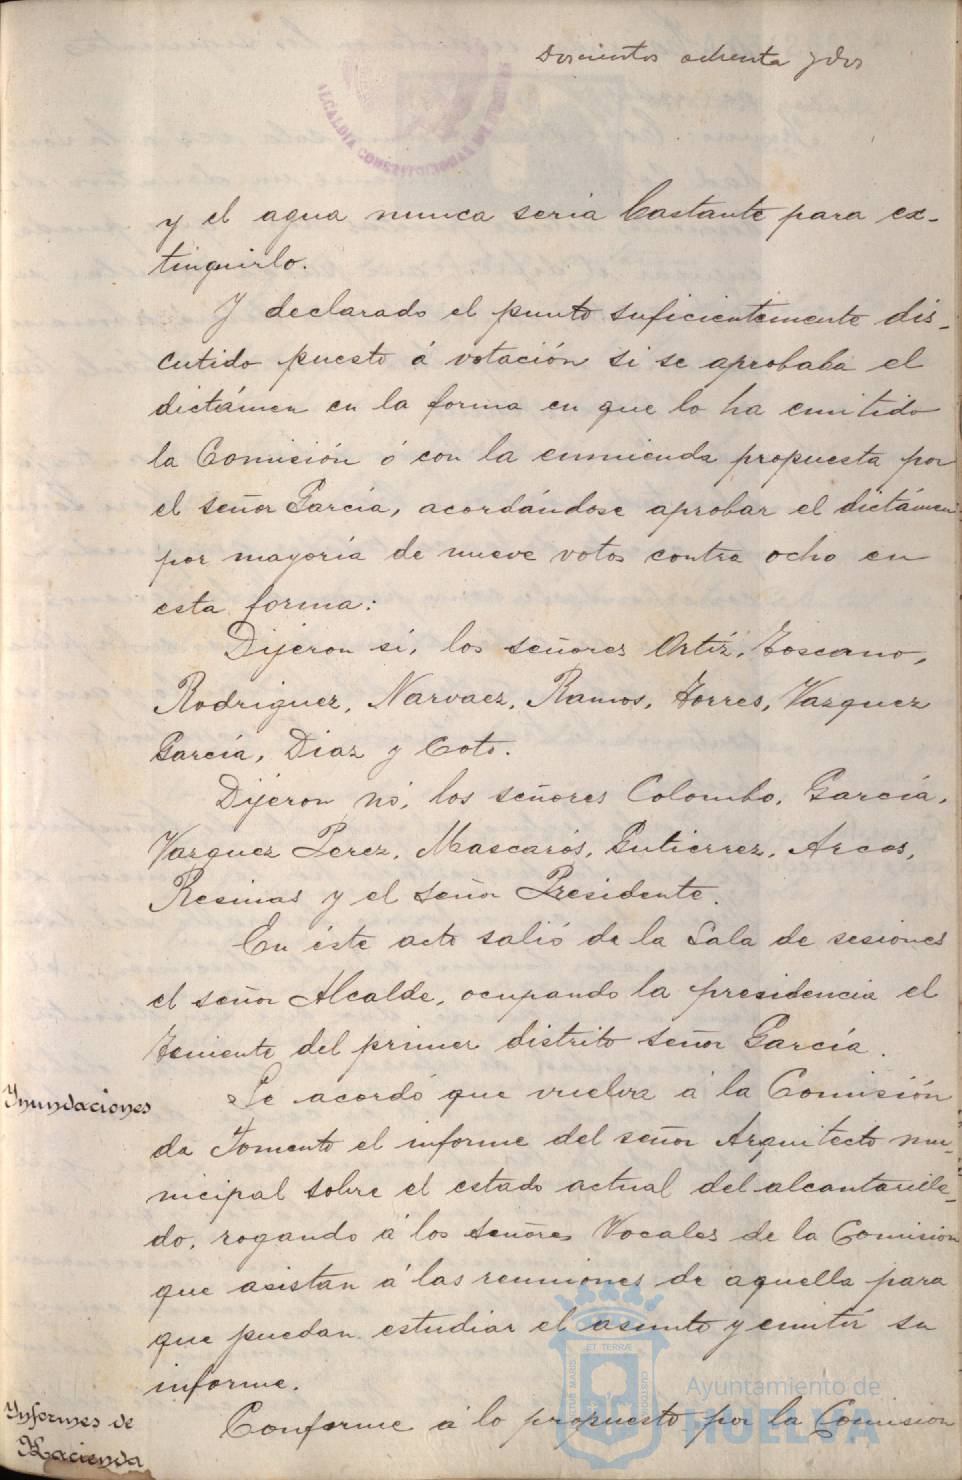 Doscientos ochenta y dos
ALCALDIA CONSTITUCIONAL DE
y el agua nunca seria bastante para ex-
tinguirlo.
Y declarado el punto suficientemente dis-
cutido puesto á votación si se aprobaba el
dictámen en la forma en que lo ha emitido
la Comisión ó con la enmienda propuesta por
el señor García, acordándose aprobar el dictámen
por mayoría de nueve votos contra ocho en
esta forma:
Dijeron si, los señores Ortíz, Toscano,
Rodriguez, Narvaez, Ramos, Torres, Vazquez
García, Diaz y Coto.
Dijeron nó, los señores Colombo, García,
Vazquez Perez, Mascarós, Gutierrez, Arcos,
Resinas y el señor Presidente.
En éste acto salió de la Sala de sesiones
el señor Alcalde, ocupando la presidencia el
teniente del primer distrito señor García.
Inundaciones
Se acordó que vuelva á la Comisión
de Fomento el informe del señor Arquitecto mu-
nicipal sobre el estado actual del alcantarilla-
do, rogando á los señores Vocales de la Comision
que asistan á las reuniones de aquella para
que puedan estudiar el asunto y emitir su
informe.
Informes de
Hacienda
Conforme á lo propuesto por la Comision
ET TERRÆ
PORTUS MARIS
CUSTODIA
Ayuntamiento de
HUELVA